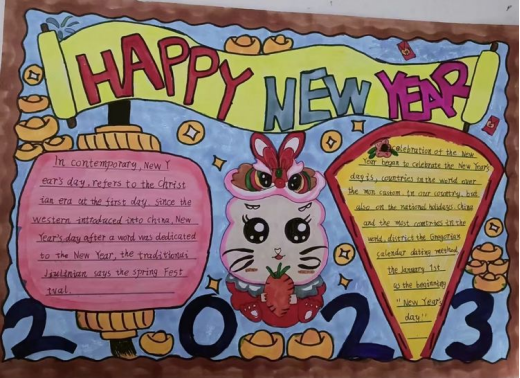 HAPPY NEW YEAR
In contemporary, New Y
ear's day, refers to the Christ
ian era at the first day, since the
Western introduced into China, New
Year's day after a word was dedicated
to the New Year, the traditional
says the spring Fest
ival
celebration of the New
Year began to celebrate the New Year's
day is, countries in the world over
the custom. In our country, but
also on the national holidays. China
and the most countries in the
world, district the Gregorian
calendar dating method,
the January 1st
so the beginning
"New Year's
day."
2023